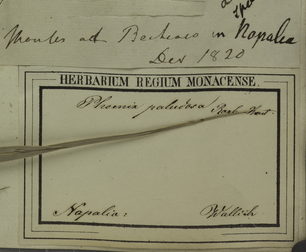 Montes ad Becheaco in Napalia
Dec 1820
HERBARIUM REGIUM MONACENSE.
Phoenix paludosa Roxb.
Napalia: Wallich